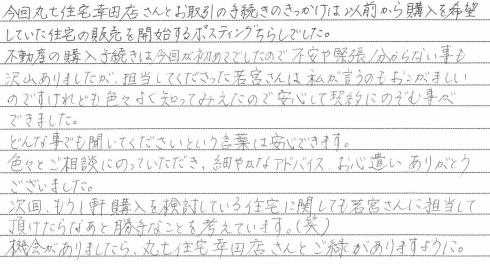 今回丸七住宅幸田店さんとお取引の手続きのきっかけは以前から購入を希望
していた住宅の販売を開始するポスティングちらしでした。
不動産の購入手続きは今回が初めてでしたので不安や緊張、分からない事も
沢山ありましたが、担当してくださった若宮さんは私が言うのもおこがましい
のですけれども色々よく知ってみえたので安心して契約にのぞむ事が
できました。
どんな事でも聞いてくださいという言葉は安心できます。
色々とご相談にのっていただき、細やかなアドバイス、お心遣いありがとう
ございました。
次回、もう1軒購入を検討している住宅に関しても若宮さんに担当して
頂けたらなあと勝手なことを考えています。(笑)
機会がありましたら、丸七住宅幸田店さんとご縁がありますように。